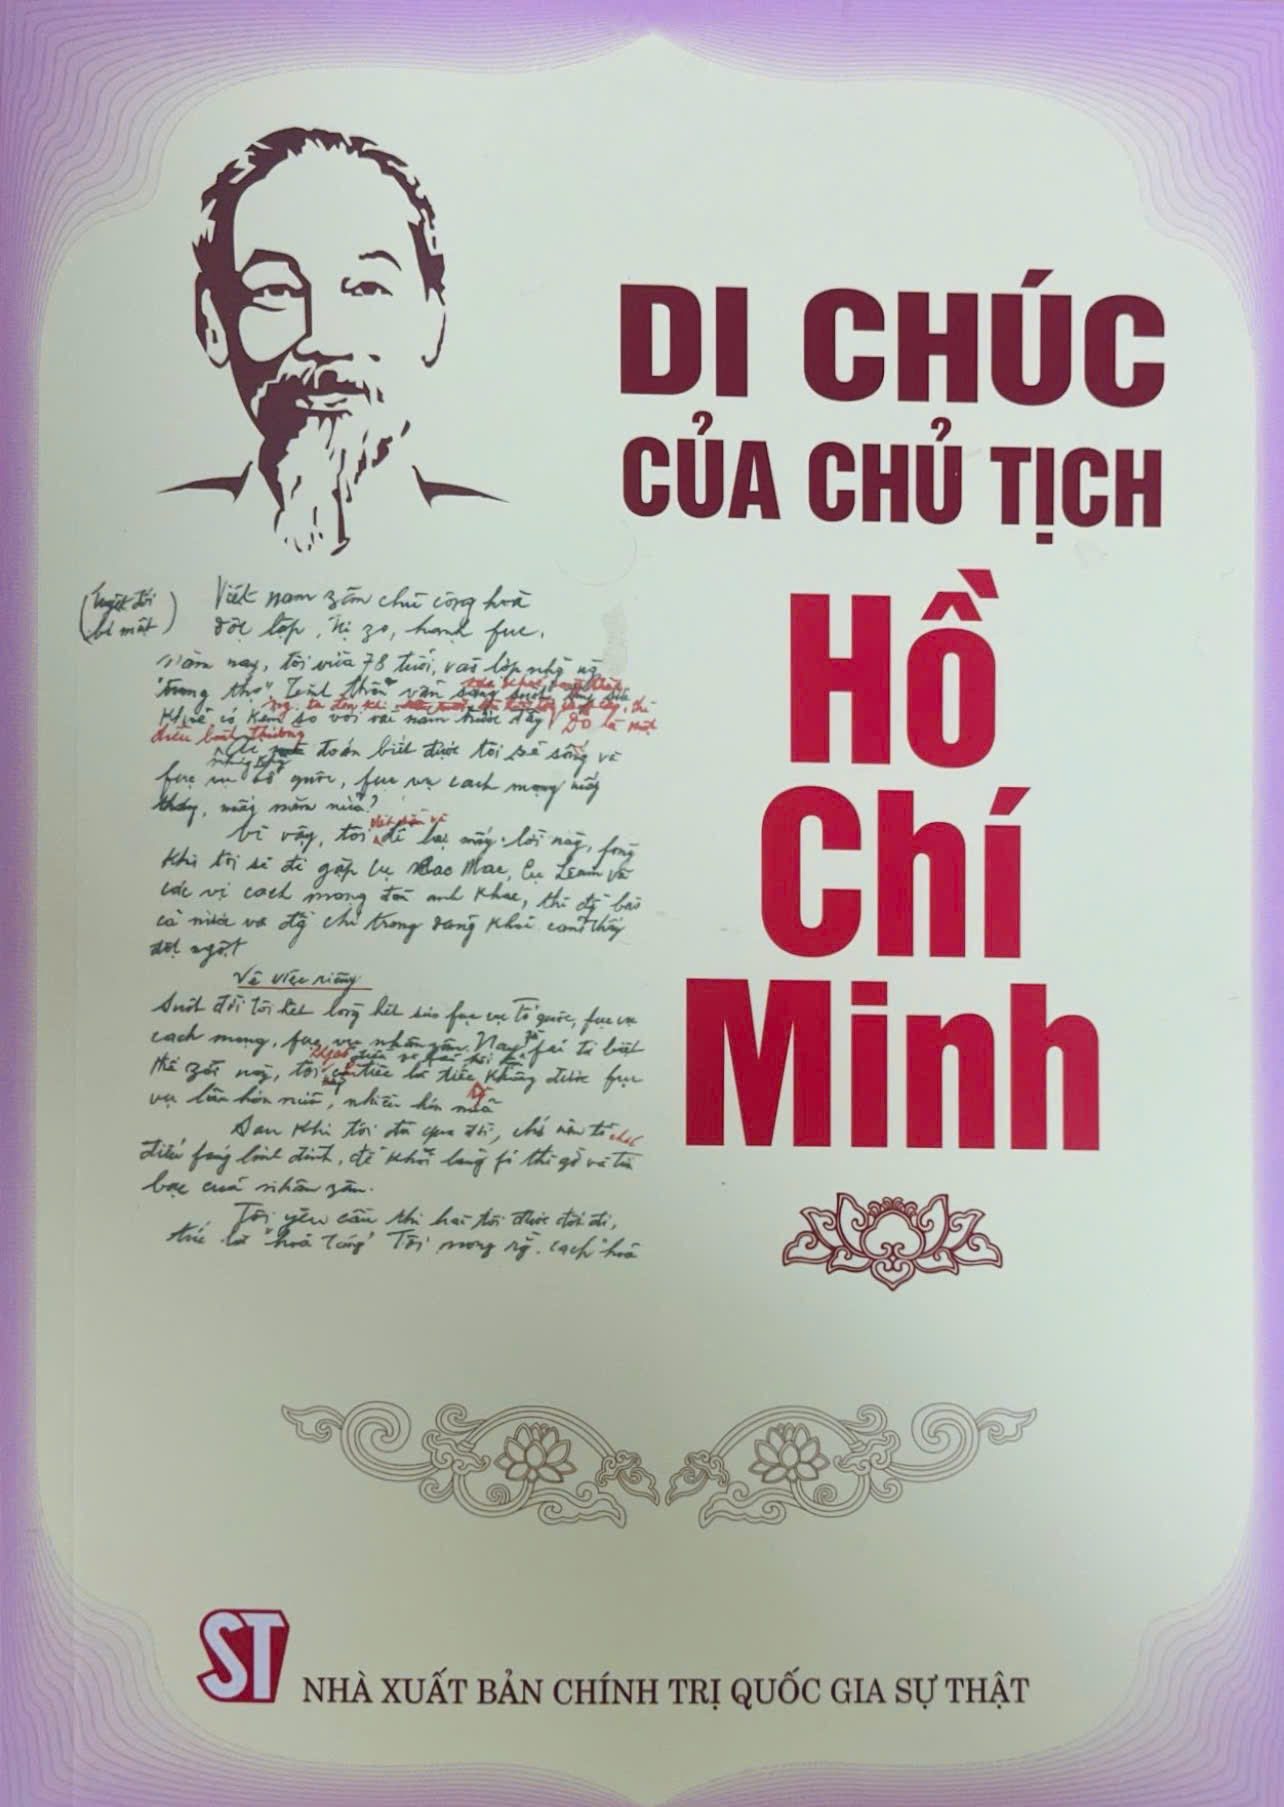 DI CHÚC
CỦA CHỦ TỊCH
HỒ
CHÍ
MINH
(tuyệt đối
bí mật)
Việt nam zân chủ cộng hoà
độc lập, tự zo, hạnh fuc.
Năm nay, tôi vừa 78 tuổi, vào lớp những
"trung thọ". Tinh thần vẫn sáng suốt
so với vài năm trước đây. Đó là một
điều bình thường.
đoán biết được tôi sẽ sống và
fục vụ tổ quốc, fục vụ cách mạng mấy
tháng, mấy năm nữa?
Vì vậy, tôi để lại mấy lời này, fòng
khi tôi sẽ đi gặp cụ Các Mác, cụ Lênin và
các vị cách mạng đàn anh khác, thì đồng bào
cả nước và đồng chí trong đảng khỏi cảm thấy
đột ngột.
Về việc riêng
Suốt đời tôi hết lòng hết sức fục vụ Tổ quốc, fục vụ
cách mạng, fục vụ nhân zân. Nay fải từ biệt
thế zới này, tôi tiếc là tiếc không được fục
vụ lâu hơn nữa, nhiều hơn nữa
Sau khi tôi đã qua đời, chớ nên tổ chức
điếu fúng linh đình, để khỏi lãng fí thì giờ và tiền
bạc của nhân zân.
Tôi yêu cầu thi hài tôi được đốt đi,
tức là "hoả táng". Tôi mong rằng cách "hoả
ST
NHÀ XUẤT BẢN CHÍNH TRỊ QUỐC GIA SỰ THẬT